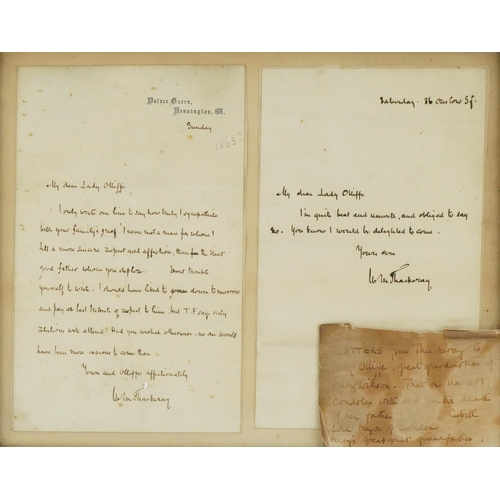 Palace Green,
Kensington, W.
Sunday
1863?
My dear Lady Olliffe
I only write one line to say how truly I sympathise
with your family's grief. I never met a man for whom I
felt a more sincere respect and affection, than for the kind
good father whom you deplore. Dont trouble
yourself to write. I should have liked to come down tomorrow
and pay a last tribute of respect to him, but T.F. says only
relations will attend. Had you wished otherwise, no one would
have been more anxious to come than
Yours and Olliffes affectionately
W M Thackeray
Saturday. 36 Onslow Sq.
My dear Lady Olliffe
I'm quite beat and unwell, and obliged to say
no. You know I would be delighted to come.
Yours ever
W M Thackeray
LETTERS from Thackeray to
Olliffe, great grandmother of
Wilson. That on the left
condoles with her on the death
of her father Cubitt
Lord Mayor of London
great great grandfather.